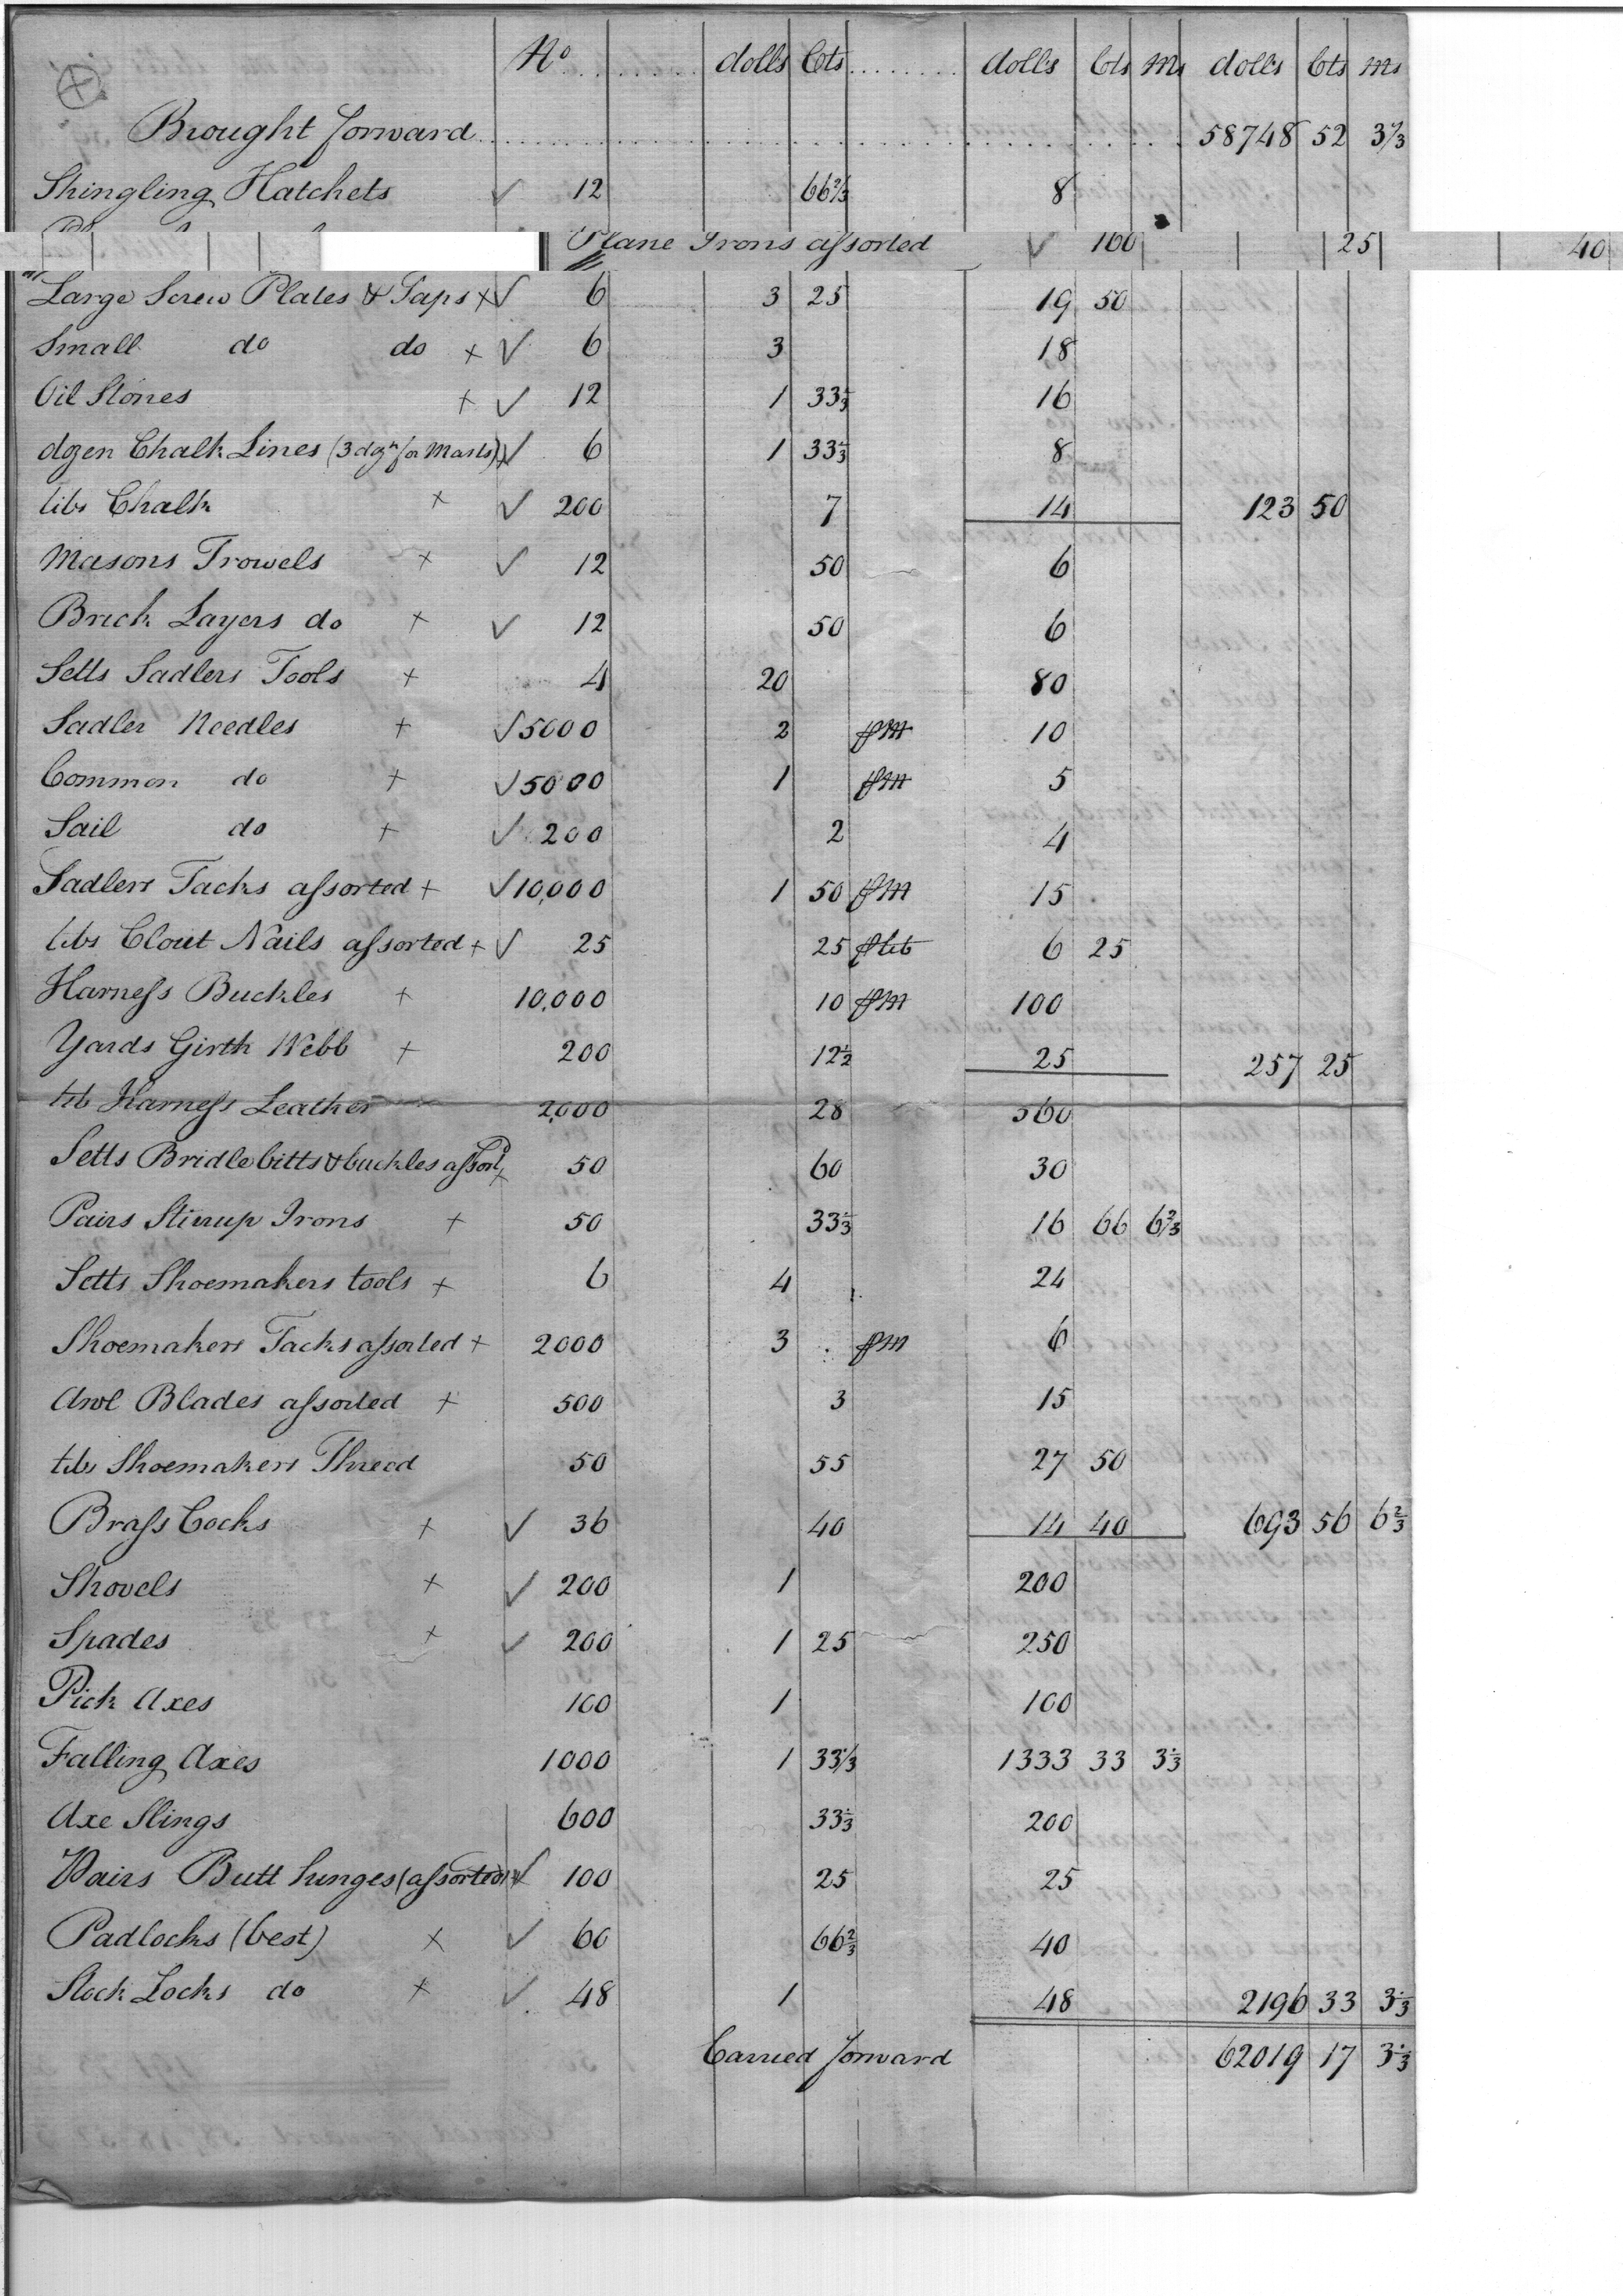 No dolls Cts dolls Cts Ms dolls Cts Ms
Brought forward 58748 52 3 1/3
Shingling Hatchets ✓ 12 66 2/3 8
Plane Irons assorted ✓ 100 25 40
Large Screw Plates & Taps x ✓ 6 3 25 19 50
Small do do x ✓ 6 3 18
Oil Stones x ✓ 12 1 33 1/3 16
dozen Chalk Lines (3 dozn for Masts) x ✓ 6 1 33 1/3 8
lbs Chalk x ✓ 200 7 14 123 50
Masons Trowels x ✓ 12 50 6
Brick Layers do x ✓ 12 50 6
Setts Sadlers Tools x 4 20 80
Sadler Needles x ✓ 5000 2 pM 10
Common do x ✓ 5000 1 pM 5
Sail do x ✓ 200 2 4
Sadlers Tacks assorted x ✓ 10,000 1 50 pM 15
lbs Clout Nails assorted x ✓ 25 25 p lb 6 25
Harness Buckles x 10,000 10 pM 100
Yards Girth Webb x 200 12 1/2 25 257 25
lb Harness Leather 2,000 28 560
Setts Bridle bitts & buckles assortd x 50 60 30
Pairs Stirrup Irons x 50 33 1/3 16 66 6 2/3
Setts Shoemakers tools x 6 4 24
Shoemakers Tacks assorted x 2000 3 pM 6
Awl Blades assorted x 500 3 15
lbs Shoemakers Thread 50 55 27 50
Brass Cocks x ✓ 36 40 14 40 693 56 6 2/3
Shovels x ✓ 200 1 200
Spades x ✓ 200 1 25 250
Pick Axes 100 1 100
Falling Axes 1000 1 33 1/3 1333 33 3 1/3
Axe Slings 600 33 1/3 200
Pairs Butt hinges (assorted) x ✓ 100 25 25
Padlocks (best) x ✓ 60 66 2/3 40
Stock Locks do x ✓ 48 1 48 2196 33 3 1/3
Carried forward 62019 17 3 1/3